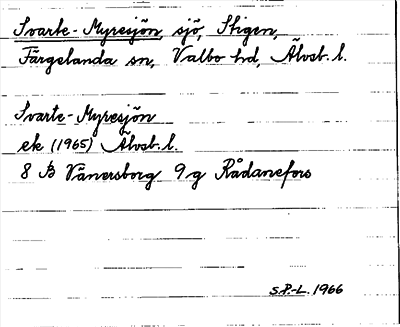 Svarte-Myresjön, sjö, Stigen,
Färgelanda sn, Valbo hd, Älvsb. l.
Svarte-Myresjön
ek (1965) Älvsb. l.
8 B Vänersborg 9 g Rådanefors
S.P.-L. 1966